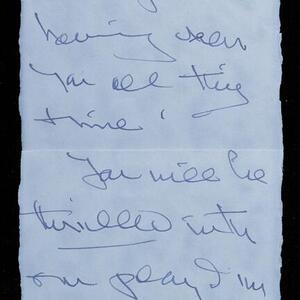 having seen
you all this
time!
You will be
thrilled with
our play & I'm